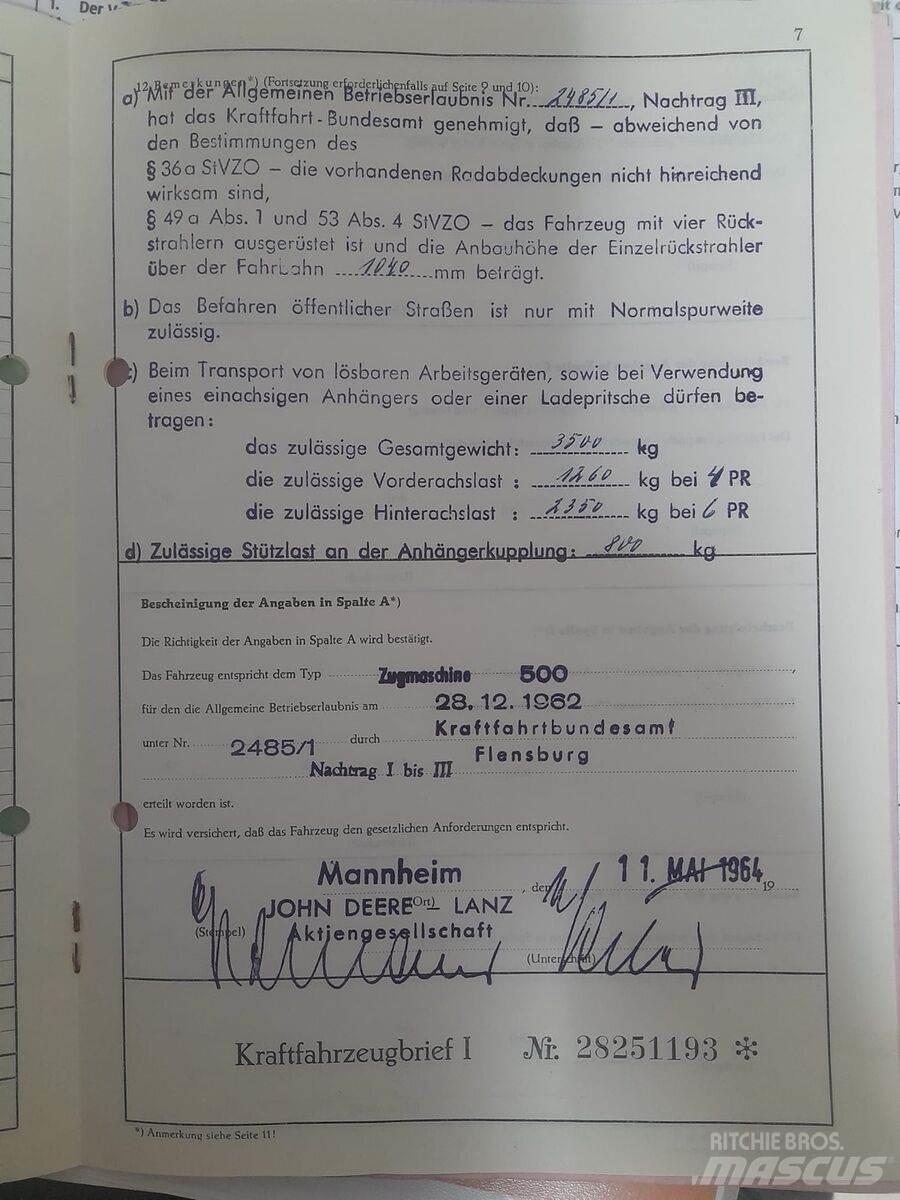 1. Der
7
12. Bemerkungen*) (Fortsetzung erforderlichenfalls auf Seite 9 und 10):
a) Mit der Allgemeinen Betriebserlaubnis Nr. 2485/1, Nachtrag III,
hat das Kraftfahrt-Bundesamt genehmigt, daß – abweichend von
den Bestimmungen des
§ 36a StVZO – die vorhandenen Radabdeckungen nicht hinreichend
wirksam sind,
§ 49a Abs. 1 und 53 Abs. 4 StVZO – das Fahrzeug mit vier Rück-
strahlern ausgerüstet ist und die Anbauhöhe der Einzelrückstrahler
über der Fahrbahn 1040 mm beträgt.
b) Das Befahren öffentlicher Straßen ist nur mit Normalspurweite
zulässig.
c) Beim Transport von lösbaren Arbeitsgeräten, sowie bei Verwendung
eines einachsigen Anhängers oder einer Ladepritsche dürfen be-
tragen:
das zulässige Gesamtgewicht: 3500 kg
die zulässige Vorderachslast : 1260 kg bei 4 PR
die zulässige Hinterachslast : 2350 kg bei 6 PR
d) Zulässige Stützlast an der Anhängerkupplung: 800 kg
Bescheinigung der Angaben in Spalte A*)
Die Richtigkeit der Angaben in Spalte A wird bestätigt.
Das Fahrzeug entspricht dem Typ Zugmaschine 500,
für den die Allgemeine Betriebserlaubnis am 28. 12. 1962
unter Nr. 2485/1 durch Kraftfahrtbundesamt
Flensburg
Nachtrag I bis III
erteilt worden ist.
Es wird versichert, daß das Fahrzeug den gesetzlichen Anforderungen entspricht.
Mannheim, den 11. MAI 1964 19
JOHN DEERE (Ort) LANZ
(Stempel) Aktiengesellschaft
(Unterschrift)
Kraftfahrzeugbrief I Nr. 28251193 *
*) Anmerkung siehe Seite 11!
RITCHIE BROS.
MASCUS